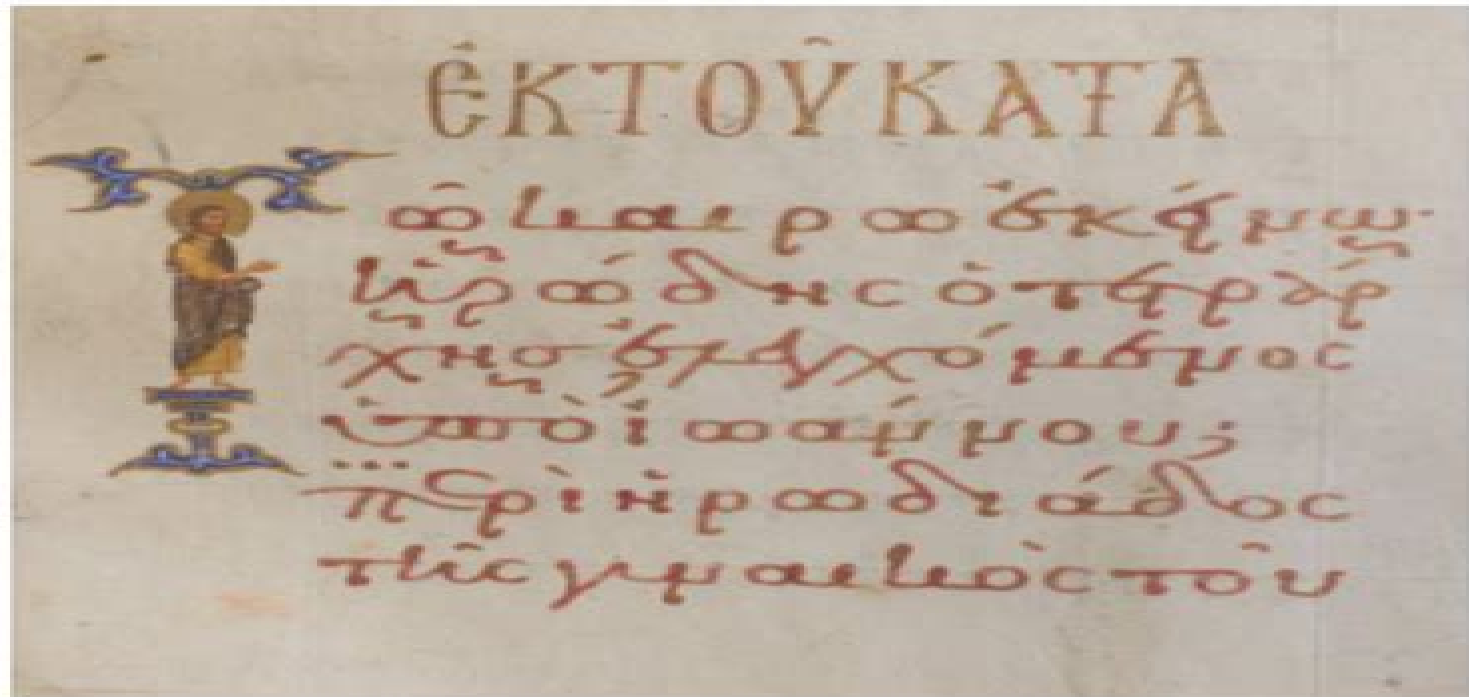 ἐκ τοῦ κατὰ
Τῶ καιρῶ ἐκείνω·
ἡρώδης ὁ τετράρ
χης ἐλεγχόμενος
ὑπὸ ἰωάννου,
περὶ ἡρωδιάδος
τῆς γυναικὸς τοῦ